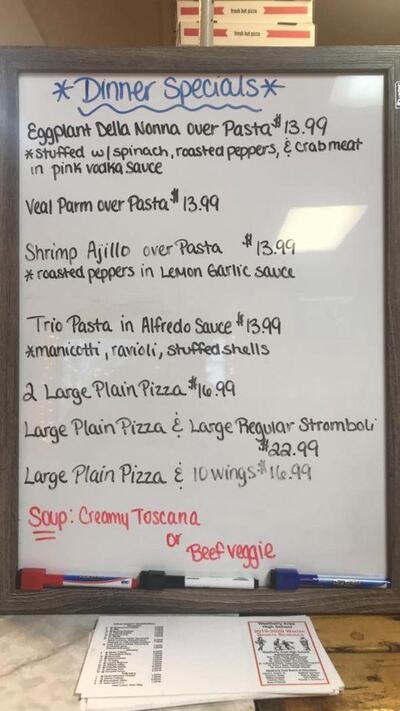 fresh hot pizza
fresh hot pizza
*Dinner Specials*
Eggplant Della Nonna over Pasta $13.99
*stuffed w/ spinach, roasted peppers, & crabmeat
in pink vodka sauce
Veal Parm over Pasta $13.99
Shrimp Ajillo over Pasta $13.99
* roasted peppers in Lemon Garlic sauce
Trio Pasta in Alfredo Sauce $13.99
*manicotti, ravioli, stuffed shells
2 Large Plain Pizza $16.99
Large Plain Pizza & Large Regular Stromboli
$22.99
Large Plain Pizza & 10 wings $16.99
Soup: Creamy Toscana
or
Beef veggie
Weatherly Area
High School
2019-2020 Winter
Sports Schedule